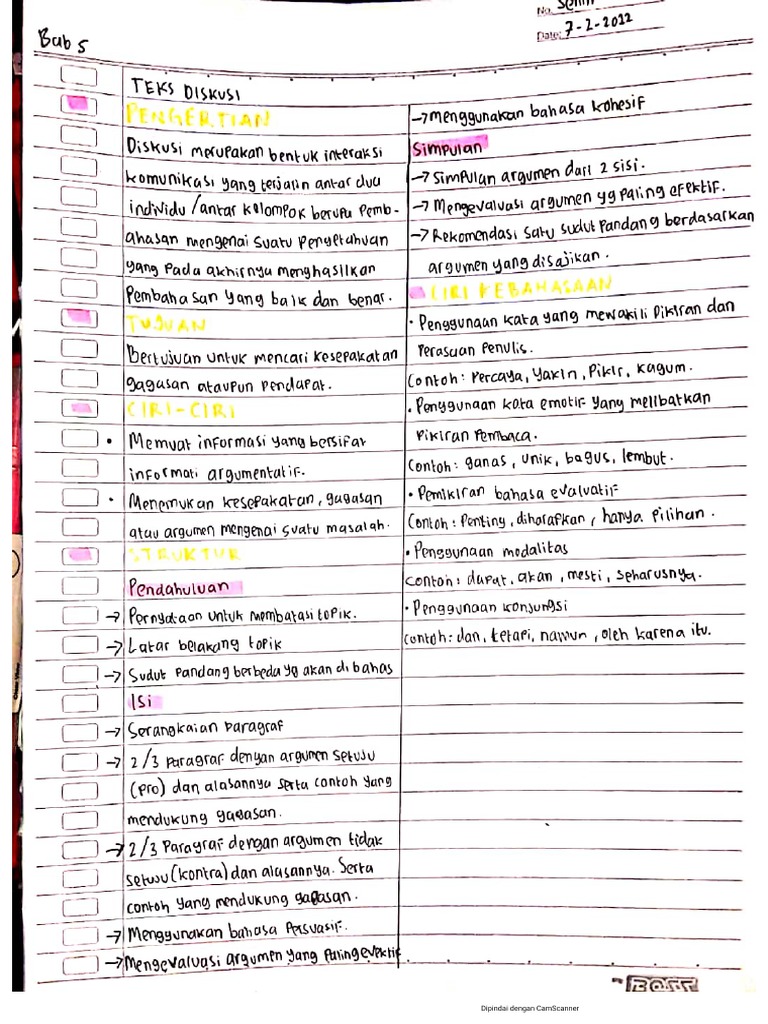 Bab 5
No. Senin
Date: 7-2-2022
TEKS DISKUSI
PENGERTIAN
Diskusi merupakan bentuk interaksi
komunikasi yang terjalin antar dua
individu/antar kolompok berupa Pemb-
ahasan mengenai suatu pengetahuan
yang pada akhirnya menghasilkan
Pembahasan yang baik dan benar.
TUJUAN
Bertujuan untuk mencari kesepakatan
gagasan ataupun pendapat.
CIRI-CIRI
• Memuat informasi yang bersifat
informati argumentatif.
• Menemukan kesepakatan, gagasan
atau argumen mengenai suatu masalah.
STRUKTUR
Pendahuluan
→ Pernyataan untuk membatasi topik.
→ Latar belakang topik
→ Sudut pandang berbeda yg akan di bahas
Isi
→ Serangkaian paragraf
→ 2/3 paragraf dengan argumen setuju
(pro) dan alasannya serta contoh yang
mendukung gagasan.
→ 2/3 Paragraf dengan argumen tidak
setuju (kontra) dan alasannya. Serta
contoh yang mendukung gagasan.
→ Menggunakan bahasa Persuasif.
→ Mengevaluasi argumen yang paling evektif.
→ menggunakan bahasa kohesif
Simpulan
→ Simpulan argumen dari 2 sisi.
→ Mengevaluasi argumen yg paling efektif.
→ Rekomendasi satu sudut pandang berdasarkan
argumen yang disajikan.
CIRI KEBAHASAAN
• Penggunaan kata yang mewakili pikiran dan
perasaan penulis.
Contoh: Percaya, Yakin, Pikir, kagum.
• Penggunaan kata emotif yang melibatkan
pikiran pembaca.
Contoh: ganas, unik, bagus, lembut.
• Pemikiran bahasa evaluatif
Contoh: Penting, diharapkan, hanya pilihan.
• Penggunaan modalitas
Contoh: dapat, akan, mesti, seharusnya.
• Penggunaan konjungsi
Contoh: dan, tetapi, namun, oleh karena itu.
BOSS
Dipindai dengan CamScanner